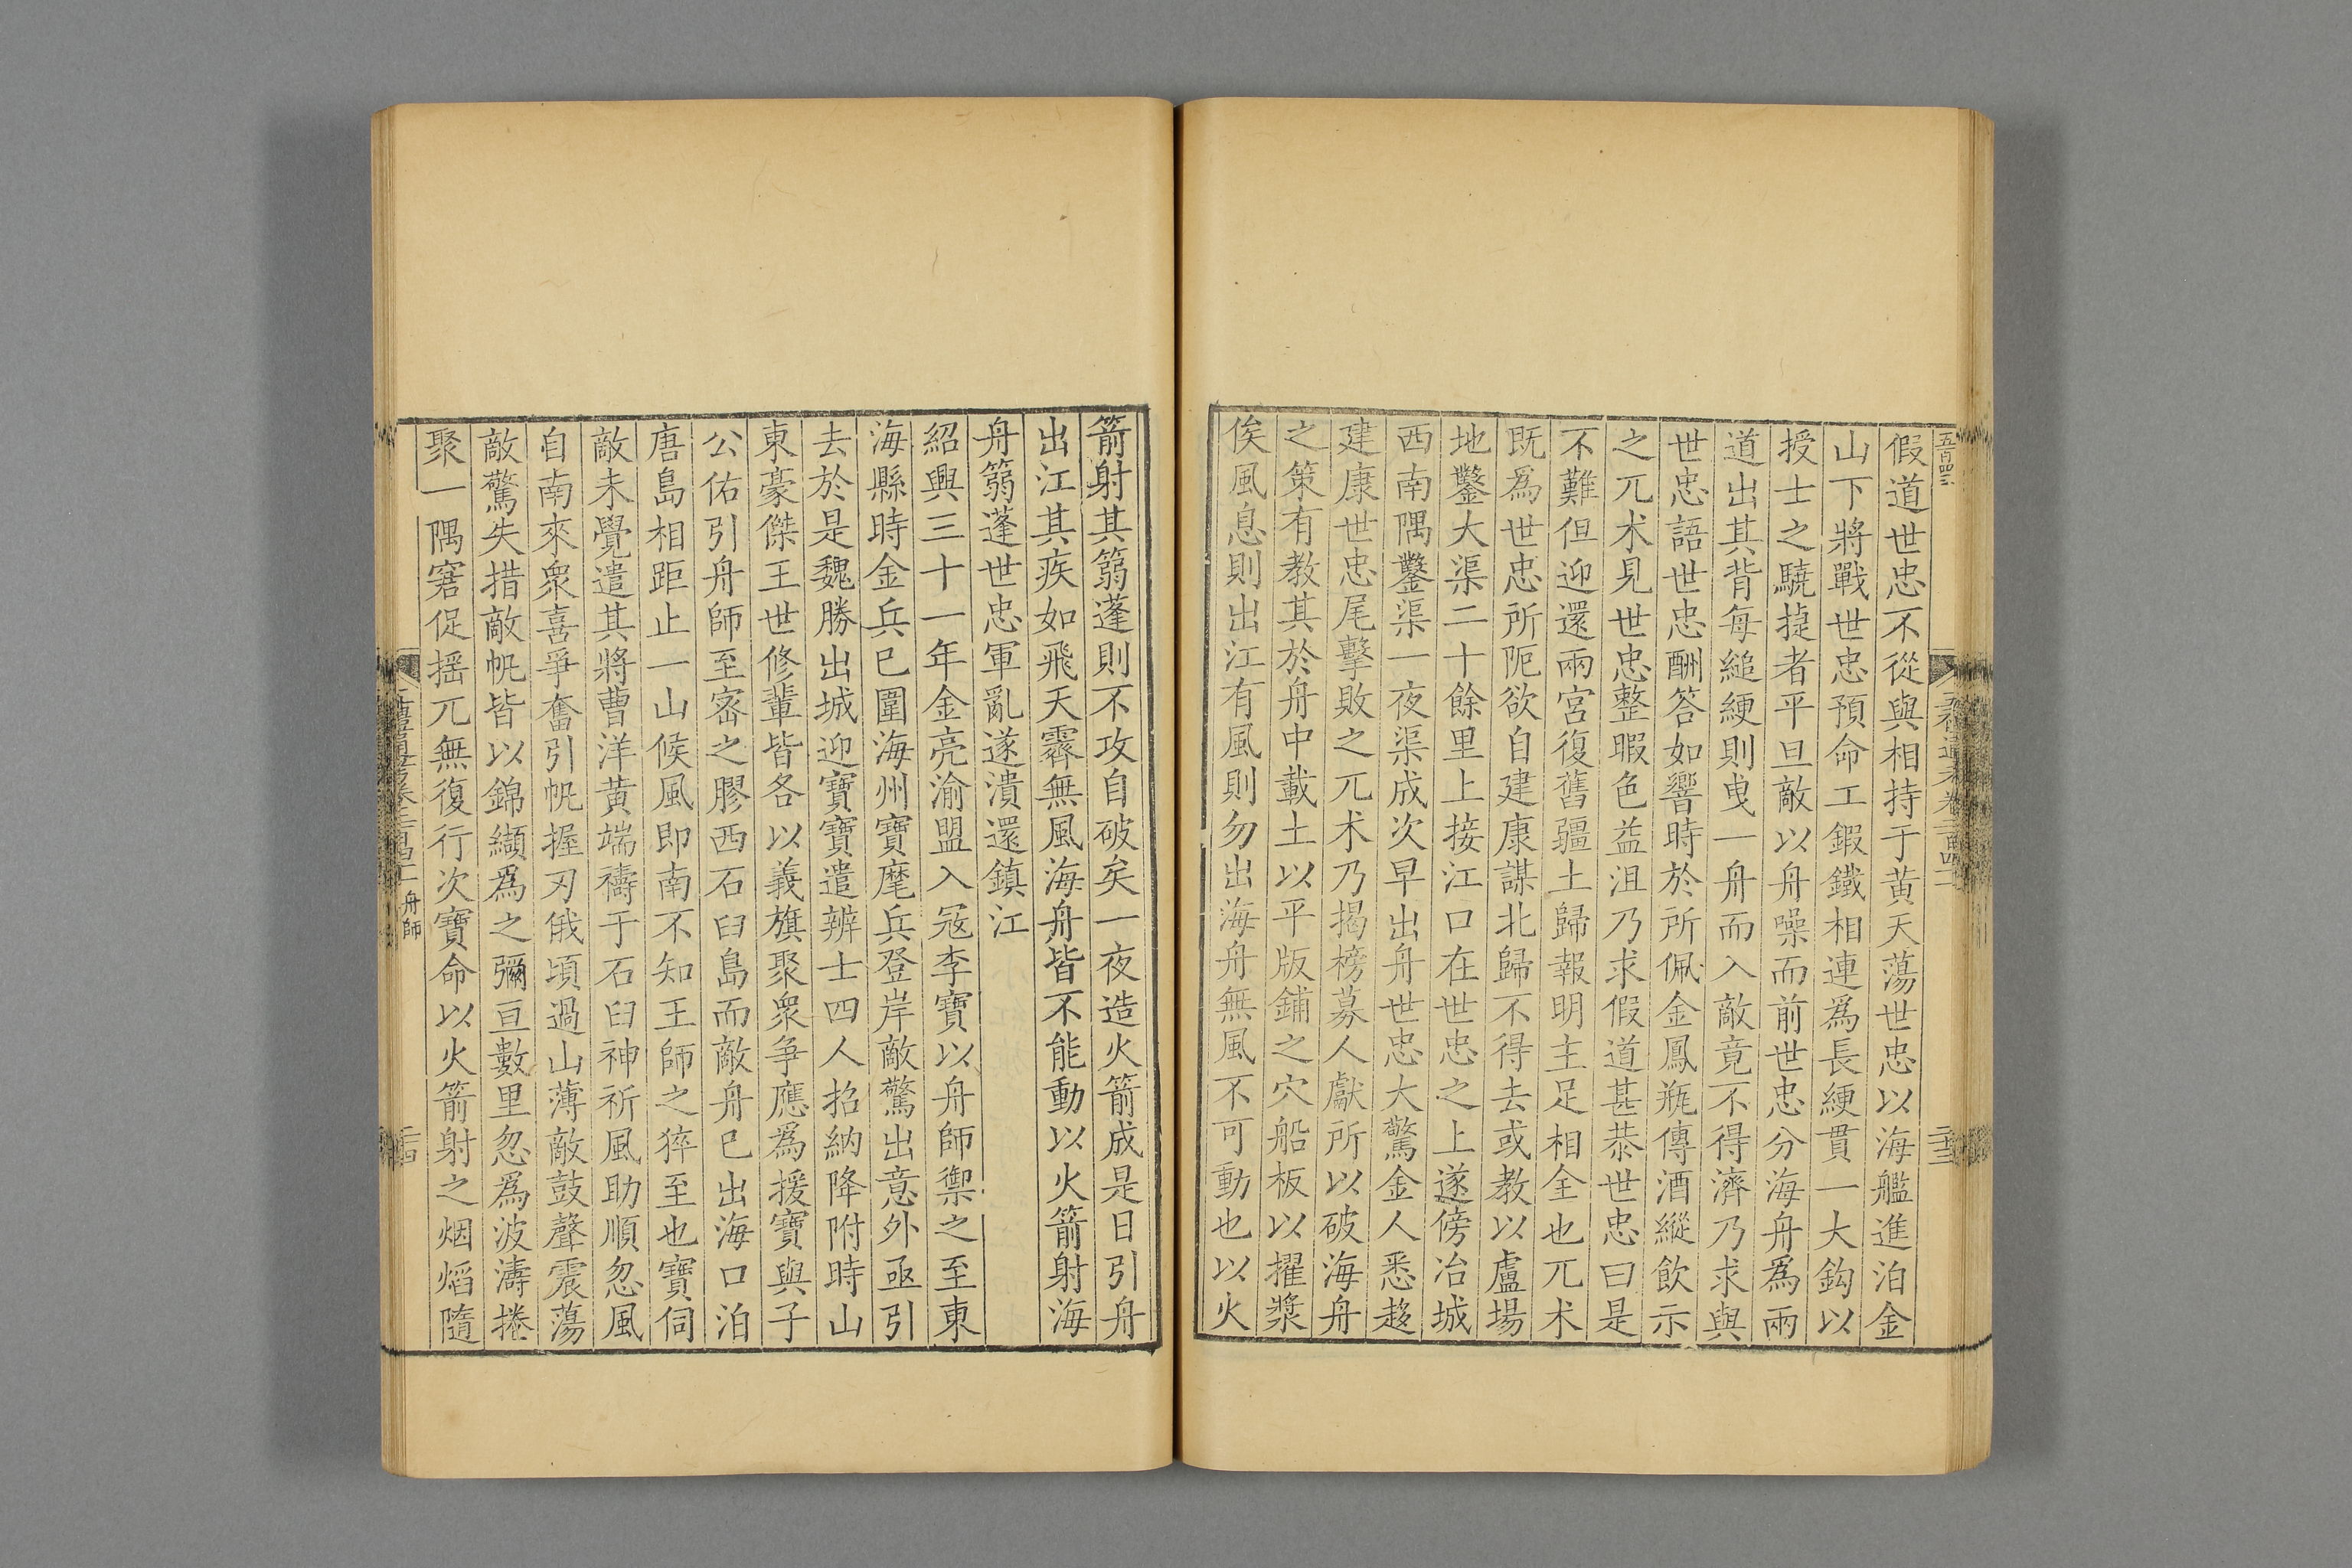 假道世忠不從與相持于黃天蕩世忠以海艦進泊金
山下將戰世忠預命工鍜鐵相連爲長綆貫一大鈎以
授士之驍㨗者平旦敵以舟噪而前世忠分海舟爲兩
道出其背每縋綆則曵一舟而入敵竟不得濟乃求與
世忠語世忠酬答如響時於所佩金鳳瓶傳酒縱飲示
之兀术見世忠整暇色益沮乃求假道甚恭世忠曰是
不難但迎還兩宮復舊疆土歸報明主足相全也兀术
既爲世忠所阨欲自建康謀北歸不得去或教以盧場
地鑿大渠二十餘里上接江口在世忠之上遂傍冶城
西南隅鑿渠一夜渠成次早出舟世忠大驚金人悉趍
建康世忠尾擊敗之兀术乃揭榜募人獻所以破海舟
之策有教其於舟中載土以平版鋪之穴船板以擢槳
俟風息則出江有風則勿出海舟無風不可動也以火
箭射其篛蓬則不攻自破矣一夜造火箭成是日引舟
出江其疾如飛天霽無風海舟皆不能動以火箭射海
舟篛蓬世忠軍亂遂潰還鎮江
紹興三十一年金亮渝盟入冦李寶以舟師禦之至東
海縣時金兵已圍海州寶麾兵登岸敵驚出意外亟引
去於是魏勝出城迎寶寶遣辨士四人招納降附時山
東豪傑王世修輩皆各以義旗聚衆争應爲援寶與子
公佑引舟師至宻之膠西石臼島而敵舟已出海口泊
唐島相距止一山候風即南不知王師之猝至也寶伺
敵未覺遣其將曹洋黃端禱于石臼神祈風助順忽風
自南來衆喜爭奮引帆握刃俄頃過山薄敵鼓聲震蕩
敵驚失措敵帆皆以錦纈爲之彌亘數里忽爲波濤捲
聚一隅窘促揺兀無復行次寶命以火箭射之烟熖隨
舟師
二十四